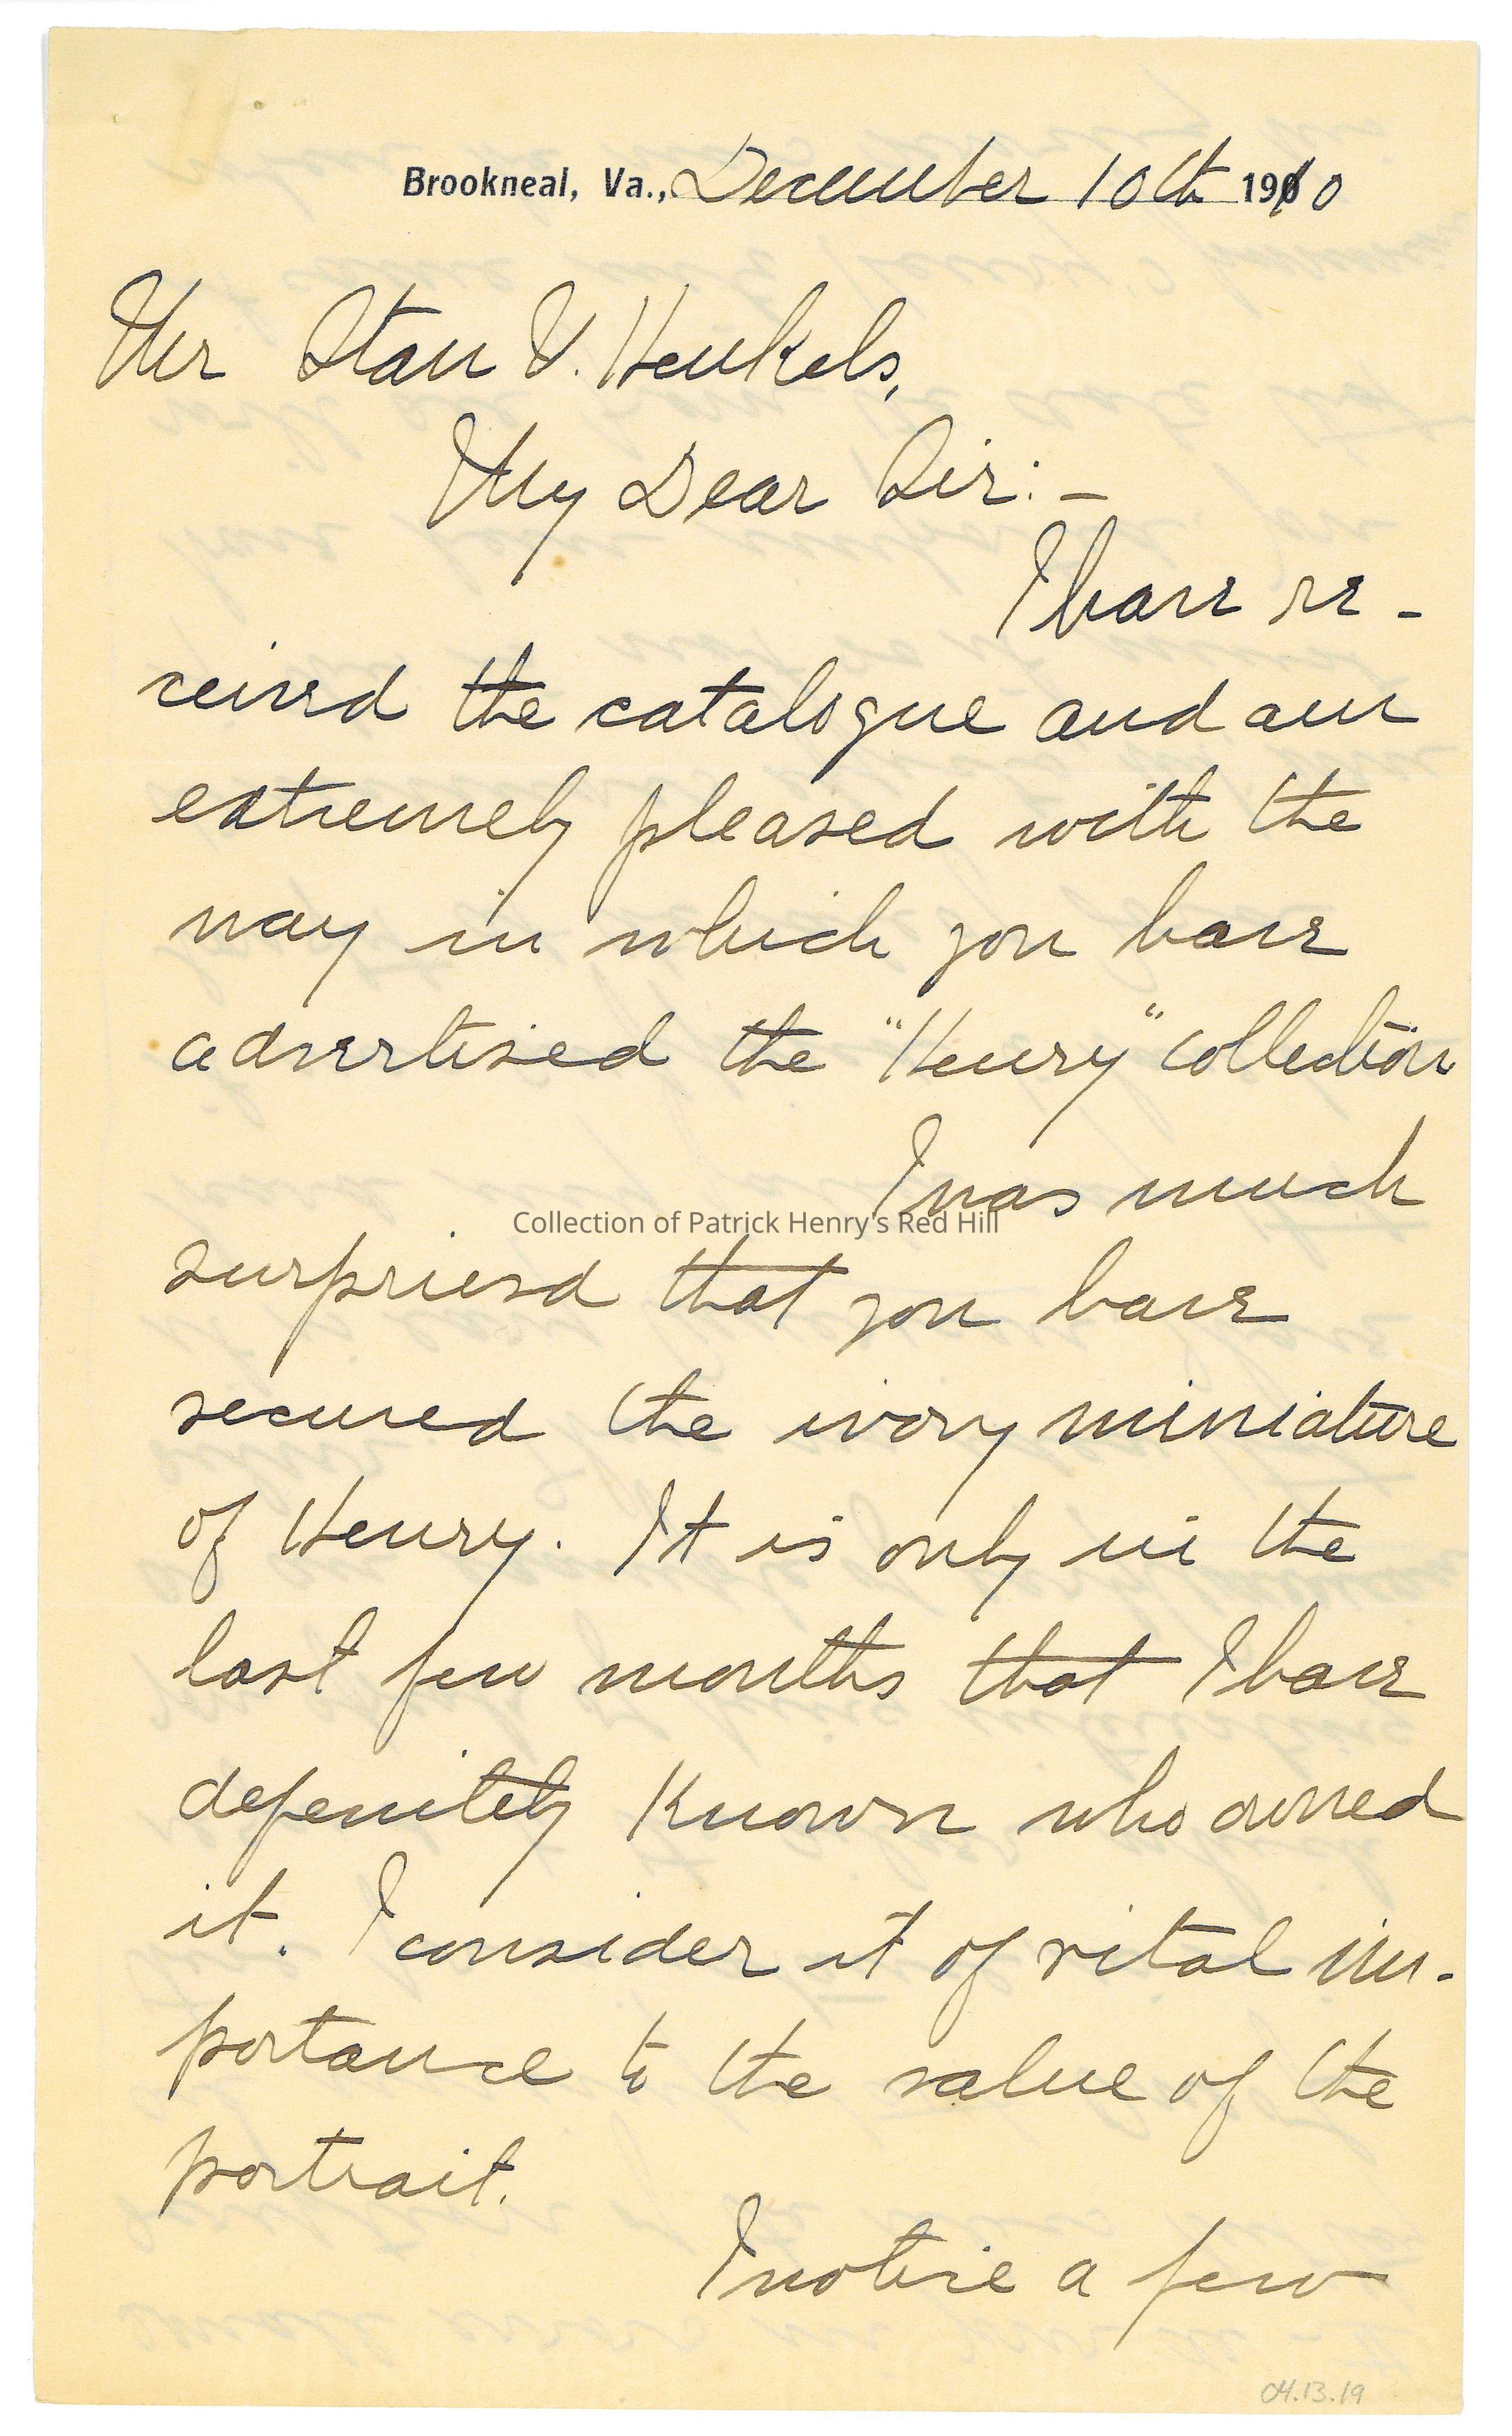 Brookneal, Va., December 10th 1910
Mr Stan V. Henkels,
My Dear Sir:-
I have re-
ceived the catalogue and am
extremely pleased with the
way in which you have
advertised the "Henry" collection
I was much
Collection of Patrick Henry's Red Hill
surpriesd that you have
secured the ivory miniature
of Henry. It is only in the
last few months that I have
defenitely known who owned
it. I consider it of vital im-
portance to the value of the
portrait.
I notice a few
04.13.19